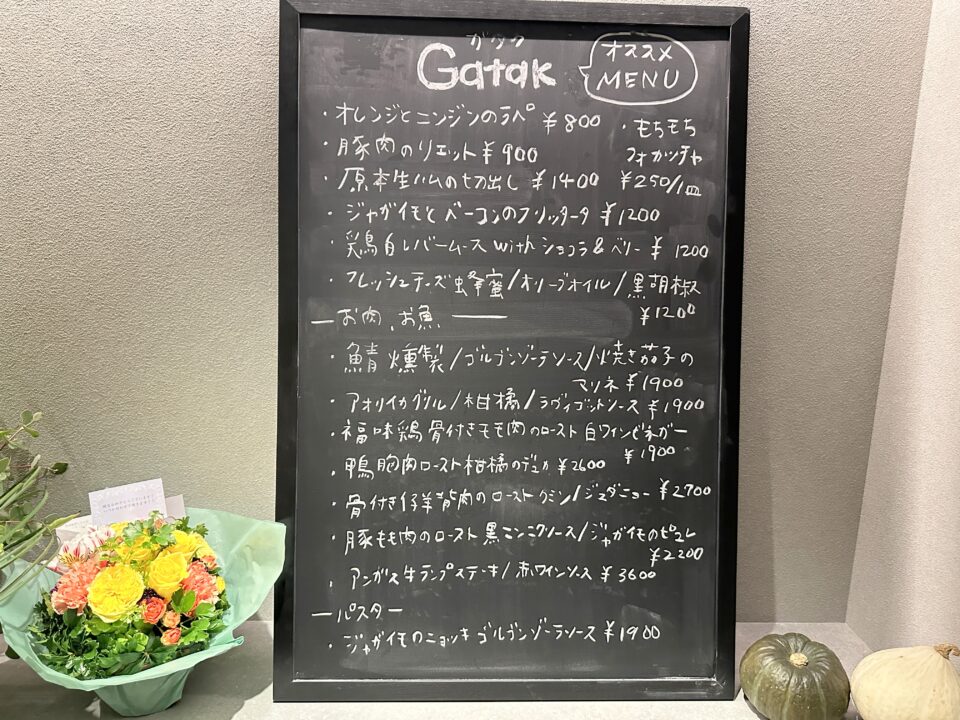 ガタク
Gatak
オススメ
MENU
・オレンジとニンジンのラペ ¥800
・豚肉のリエット ¥900
・もちもち
フォカッチャ
¥250/1皿
・原木生ハムの切出し ¥1400
・ジャガイモとベーコンのフリッタータ ¥1200
・鶏白レバームース with ショコラ&ベリー ¥1200
・フレッシュチーズ 蜂蜜/オリーブオイル/黒胡椒
¥1200
ー お肉、お魚 ー
・鯖燻製/ゴルゴンゾーラソース/焼き茄子の
マリネ ¥1900
・アオリイカグリル/柑橘/ラヴィゴットソース ¥1900
・福味鶏骨付きモモ肉のロースト 白ワインビネガー
¥1900
・鴨胸肉ロースト 柑橘のデュカ ¥2600
・骨付き仔羊背肉のロースト クミン/ジュダニョー ¥2700
・豚もも肉のロースト 黒ニンニクソース/ジャガイモのピュレ
¥2200
・アンガス牛ランプステーキ/赤ワインソース ¥3600
ー パスタ ー
・ジャガイモのニョッキ ゴルゴンゾーラソース ¥1900